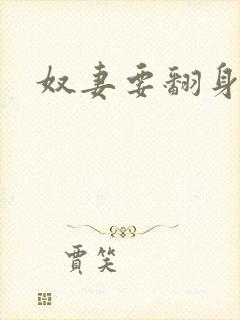 奴妻要翻身
贾笑